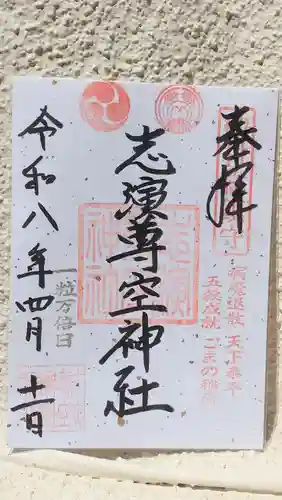 奉拝
病魔退散 天下泰平
五穀成就
志演尊空神社
一粒万倍日
令和八年四月十一日